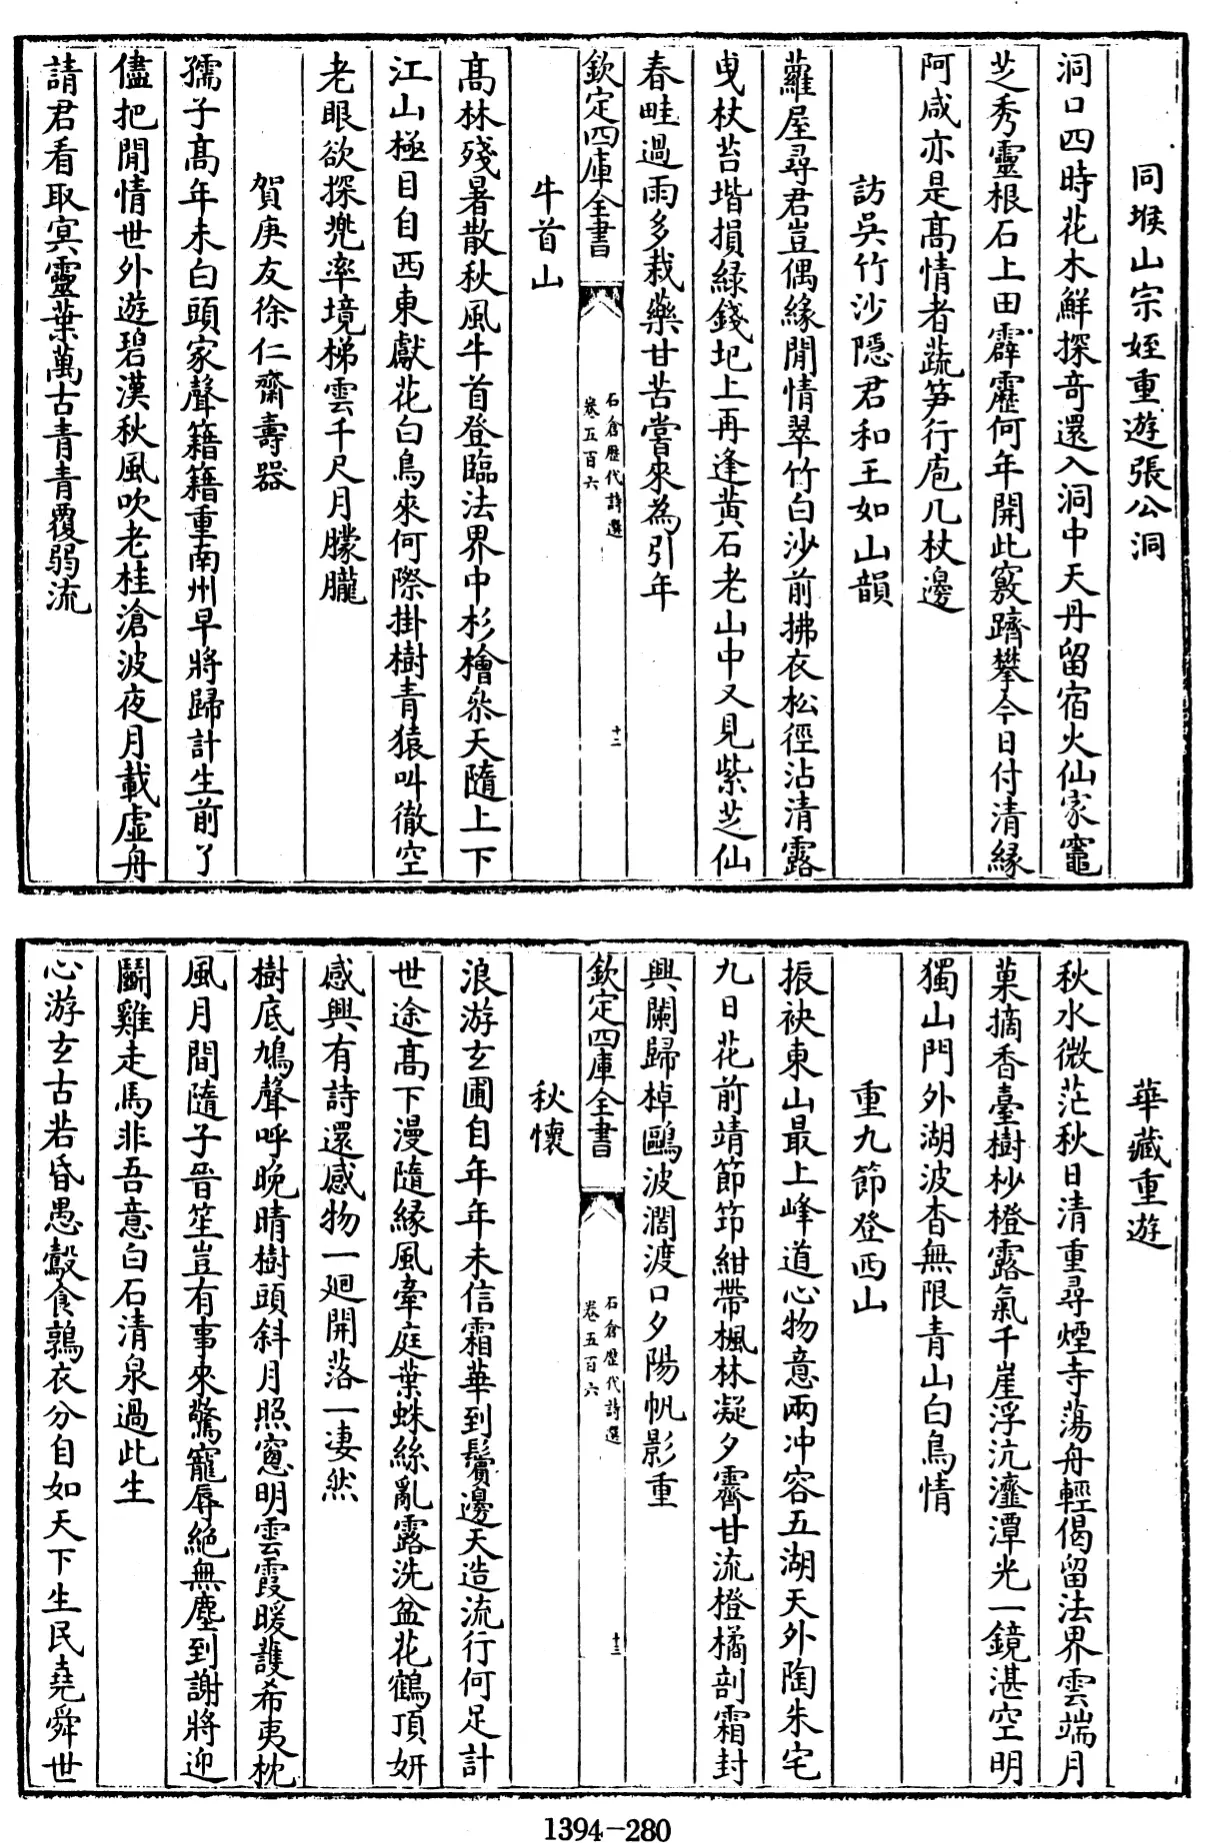 同堠山宗姪重遊張公洞
洞口四時花木鮮探奇還入洞中天丹留宿火仙家竈
芝秀靈根石上田霹靂何年開此竅躋攀今日付清緣
阿咸亦是髙情者蔬笋行庖几杖邊
訪吳竹沙隱君和王如山韻
蘿屋尋君豈偶緣閒情翠竹白沙前拂衣松徑沾清露
曳杖苔堦損緑錢圯上再逢黄石老山中又見紫芝仙
春畦過雨多栽藥甘苦嘗來為引年
欽定四庫全書
石倉歴代詩選
卷五百六
十二
牛首山
髙林殘暑散秋風牛首登臨法界中杉檜叅天隨上下
江山極目自西東獻花白鳥來何際掛樹青猿叫徹空
老眼欲探兠率境梯雲千尺月朦朧
賀庚友徐仁齋壽器
孺子髙年未白頭家聲籍籍重南州早將歸計生前了
儘把閒情世外遊碧漢秋風吹老桂滄波夜月載虛舟
請君看取㝠靈葉萬古青青覆弱流
華藏重遊
秋水微茫秋日清重尋煙寺蕩舟輕偈留法界雲端月
菓摘香臺樹杪橙露氣千崖浮沆瀣潭光一鏡湛空明
獨山門外湖波杳無限青山白鳥情
重九節登西山
振袂東山最上峰道心物意兩冲容五湖天外陶朱宅
九日花前靖節笻紺帶楓林凝夕霽甘流橙橘剖霜封
興闌歸棹鷗波濶渡口夕陽帆影重
欽定四庫全書
石倉歴代詩選
卷五百六
十三
秋懷
浪游玄圃自年年未信霜華到鬢邊天造流行何足計
世途髙下漫隨緣風牽庭葉蛛絲亂露洗盆花鶴頂妍
感興有詩還感物一廻開落一凄然
樹底鳩聲呼晚晴樹頭斜月照窻明雲霞暖護希夷枕
風月間隨子晉笙豈有事來驚寵辱絶無塵到謝將迎
鬭雞走馬非吾意白石清泉過此生
心游玄古若昏愚鷇食鶉衣分自如天下生民堯舜世
1394-280